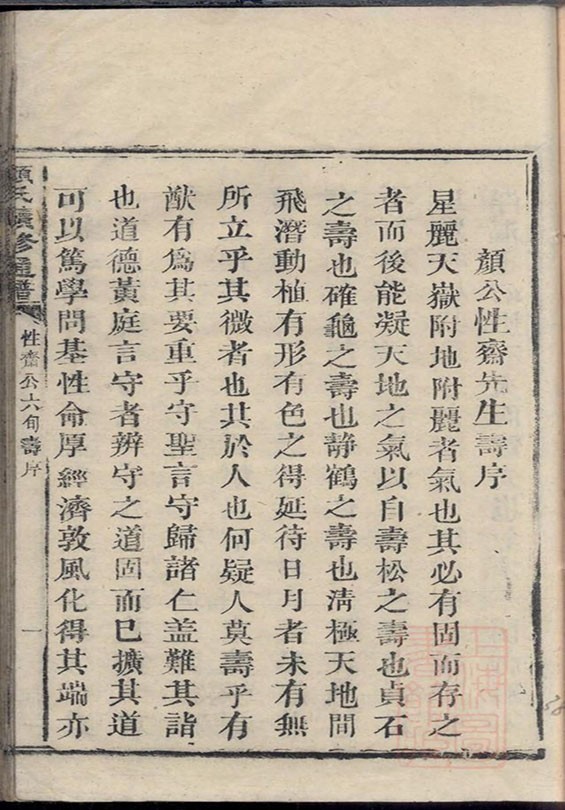 顏公性齋先生壽序
星麗天嶽附地附麗者氣也其必有固而存之
者而後能凝天地之氣以自壽松之壽也貞石
之壽也確龜之壽也靜鶴之壽也清極天地間
飛潛動植有形有色之得延待日月者未有無
所立乎其微者也其於人也何疑人莫壽乎有
猷有為其要重乎守聖言守歸諸仁蓋難其詣
也道德黃庭言守者辨守之道固而已擴其道
可以篤學問基性命厚經濟敦風化得其端亦
顏氏續修通譜
性齋公六旬壽序
一